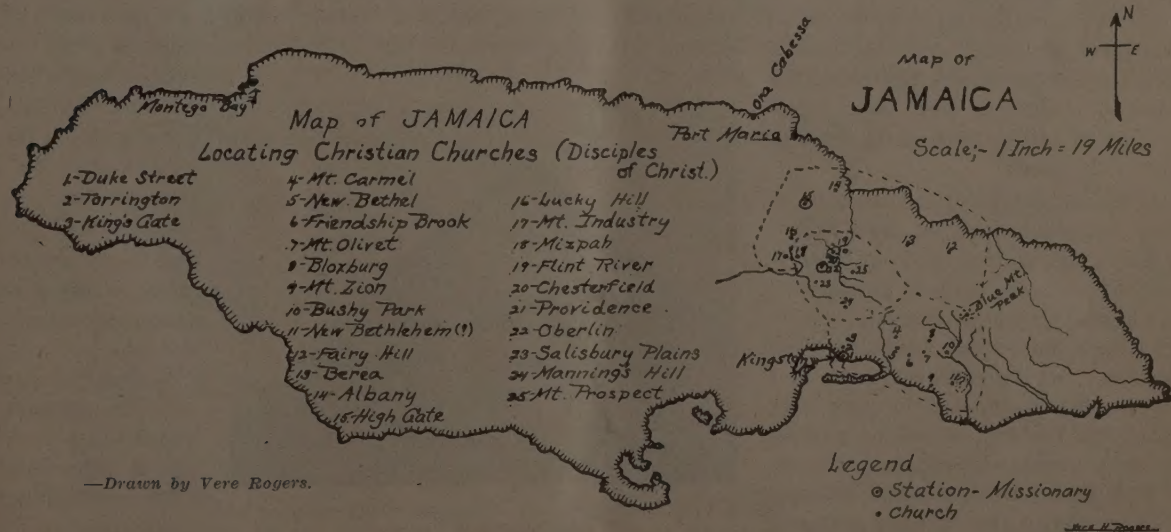 Map of JAMAICA
Locating Christian Churches (Disciples of Christ.)
1-Duke Street
2-Torrington
3-King's Gate
4-Mt. Carmel
5-New Bethel
6-Friendship Brook
7-Mt. Olivet
8-Bloxburg
9-Mt. Zion
10-Bushy Park
11-New Bethlehem(?)
12-Fairy Hill
13-Berea
14-Albany
15-High Gate
16-Lucky Hill
17-Mt. Industry
18-Mizpah
19-Flint River
20-Chesterfield
21-Providence
22-Oberlin
23-Salisbury Plains
24-Manning's Hill
25-Mt. Prospect
Montego Bay
Ora Cabessa
Port Maria
Map of
JAMAICA
Scale;- 1 Inch = 19 Miles
N
W E
13
12
16
17
25
23
24
Blue Mt. Peak
Kingston
6
7
9
Legend
Station- Missionary
Church
—Drawn by Vere Rogers.